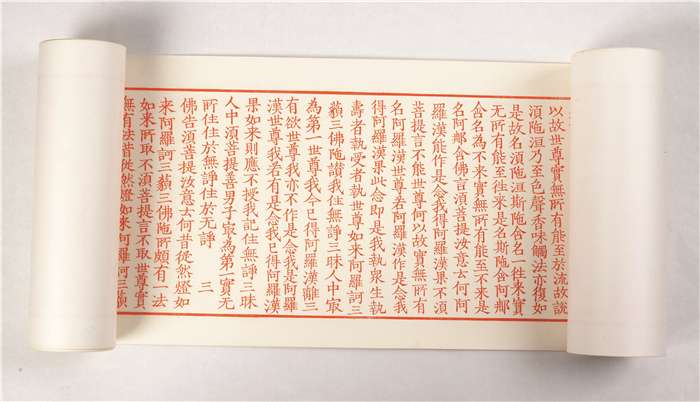 以故世尊實無所有能至於流故說
須陁洹乃至色聲香味觸法亦復如
是故名須陁洹斯陁含名一往來實
无所有能至往來是名斯陁含阿那
含名為不來實無所有能至不來是
名阿那含佛言須菩提汝意云何阿
羅漢能作是念我得阿羅漢果不須
菩提言不能世尊何以故實無所有
名阿羅漢世尊若阿羅漢作是念我
得阿羅漢果此念即是我執衆生執
壽者執受者執世尊如來阿羅訶三
藐三佛陁讚我住無諍三昧人中㝡
為第一世尊我今已得阿羅漢離三
有欲世尊我亦不作是念我是阿羅
漢世尊我若有是念我已得阿羅漢
果如來則應不授我記住無諍三昧
人中須菩提善男子㝡為第一實无
所住住於無諍住於无諍 三
佛告須菩提汝意云何昔從然燈如
來阿羅訶三藐三佛陁所頗有一法
如來所取不須菩提言不取世尊實
無有法昔從然燈如來阿羅訶三藐